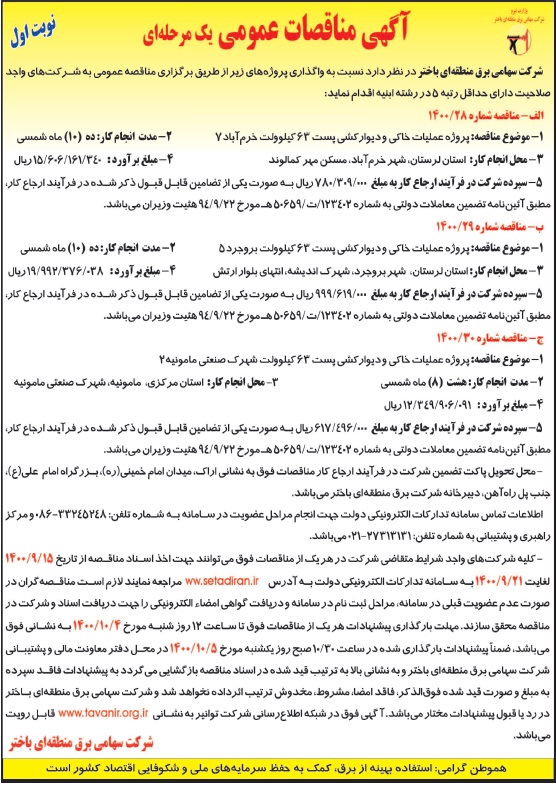 وزارت نیرو
شرکت سهامی برق منطقه‌ای باختر
آگهی مناقصات عمومی یک مرحله‌ای
نوبت اول
شرکت سهامی برق منطقه‌ای باختر در نظر دارد نسبت به واگذاری پروژه‌های زیر از طریق برگزاری مناقصه عمومی به شرکت‌های واجد
صلاحیت دارای حداقل رتبه ۵ در رشته ابنیه اقدام نماید:
الف- مناقصه شماره ۱۴۰۰/۲۸
۱- موضوع مناقصه: پروژه عملیات خاکی و دیوارکشی پست ۶۳ کیلوولت خرم‌آباد۷ ۲- مدت انجام کار: ده (۱۰) ماه شمسی
۳- محل انجام کار: استان لرستان، شهر خرم‌آباد، مسکن مهر کمالوند ۴- مبلغ برآورد: ۱۵/۶۰۶/۱۶۱/۳۴۰ ریال
۵- سپرده شرکت در فرآیند ارجاع کار به مبلغ ۷۸۰/۳۰۹/۰۰۰ ریال به صورت یکی از تضامین قابل قبول ذکر شده در فرآیند ارجاع کار،
مطبق آئین‌نامه تضمین معاملات دولتی به شماره ۱۲۳۴۰۲/ت/۵۰۶۵۹ هـ مورخ ۹۴/۹/۲۲ هئیت وزیران می‌باشد.
ب- مناقصه شماره ۱۴۰۰/۲۹
۱- موضوع مناقصه: پروژه عملیات خاکی و دیوارکشی پست ۶۳ کیلوولت بروجرد۵ ۲- مدت انجام کار: ده (۱۰) ماه شمسی
۳- محل انجام کار: استان لرستان، شهر بروجرد، شهرک اندیشه، انتهای بلوار ارتش ۴- مبلغ برآورد: ۱۹/۹۹۲/۳۷۶/۰۳۸ ریال
۵- سپرده شرکت در فرآیند ارجاع کار به مبلغ ۹۹۹/۶۱۹/۰۰۰ ریال به صورت یکی از تضامین قابل قبول ذکر شده در فرآیند ارجاع کار،
مطبق آئین‌نامه تضمین معاملات دولتی به شماره ۱۲۳۴۰۲/ت/۵۰۶۵۹ هـ مورخ ۹۴/۹/۲۲ هئیت وزیران می‌باشد.
ج- مناقصه شماره ۱۴۰۰/۳۰
۱- موضوع مناقصه: پروژه عملیات خاکی و دیوارکشی پست ۶۳ کیلوولت شهرک صنعتی مامونیه۲
۲- مدت انجام کار: هشت (۸) ماه شمسی ۳- محل انجام کار: استان مرکزی، مامونیه، شهرک صنعتی مامونیه
۴- مبلغ برآورد: ۱۲/۳۴۹/۹۰۶/۰۹۱ ریال
۵- سپرده شرکت در فرآیند ارجاع کار به مبلغ ۶۱۷/۴۹۶/۰۰۰ ریال به صورت یکی از تضامین قابل قبول ذکر شده در فرآیند ارجاع کار،
مطبق آئین‌نامه تضمین معاملات دولتی به شماره ۱۲۳۴۰۲/ت/۵۰۶۵۹ هـ مورخ ۹۴/۹/۲۲ هئیت وزیران می‌باشد.
- محل تحویل پاکت تضمین شرکت در فرآیند ارجاع کار مناقصات فوق به نشانی اراک، میدان امام خمینی(ره)، بزرگراه امام علی(ع)،
جنب پل راه‌آهن، دبیرخانه شرکت برق منطقه‌ای باختر می‌باشد.
اطلاعات تماس سامانه تدارکات الکترونیکی دولت جهت انجام مراحل عضویت در سامانه به شماره تلفن: ۳۳۲۴۵۲۴۸-۰۸۶ و مرکز
راهبری و پشتیبانی به شماره تلفن: ۲۷۳۱۳۱۳۱-۰۲۱ می‌باشد.
- کلیه شرکت‌های واجد شرایط متقاضی شرکت در هر یک از مناقصات فوق می‌توانند جهت اخذ اسناد مناقصه از تاریخ ۱۴۰۰/۹/۱۵
لغایت ۱۴۰۰/۹/۲۱ به سامانه تدارکات الکترونیکی دولت به آدرس ww.setadiran.ir مراجعه نمایند لازم است مناقصه‌گران در
صورت عدم عضویت قبلی در سامانه، مراحل ثبت نام در سامانه و دریافت گواهی امضاء الکترونیکی را جهت دریافت اسناد و شرکت در
مناقصه محقق سازند. مهلت بارگذاری پیشنهادات هر یک از مناقصات فوق تا ساعت ۱۲ روز شنبه مورخ ۱۴۰۰/۱۰/۴ به نشانی فوق
می‌باشد، ضمناً پیشنهادات بارگذاری شده در ساعت ۱۰/۳۰ صبح روز یکشنبه مورخ ۱۴۰۰/۱۰/۵ در محل دفتر معاونت مالی و پشتیبانی
شرکت سهامی برق منطقه‌ای باختر و به نشانی بالا به ترتیب قید شده در اسناد مناقصه بازگشایی می‌گردد به پیشنهادات فاقد سپرده
به مبلغ و صورت قید شده فوق‌الذکر، فاقد امضا، مشروط، مخدوش ترتیب اثر داده نخواهد شد و شرکت سهامی برق منطقه‌ای باختر
در رد یا قبول پیشنهادات مختار می‌باشد. آگهی فوق در شبکه اطلاع‌رسانی شرکت توانیر به نشانی www.tavanir.org.ir قابل رویت
می‌باشد.
شرکت سهامی برق منطقه‌ای باختر
هموطن گرامی: استفاده بهینه از برق، کمک به حفظ سرمایه‌های ملی و شکوفایی اقتصاد کشور است